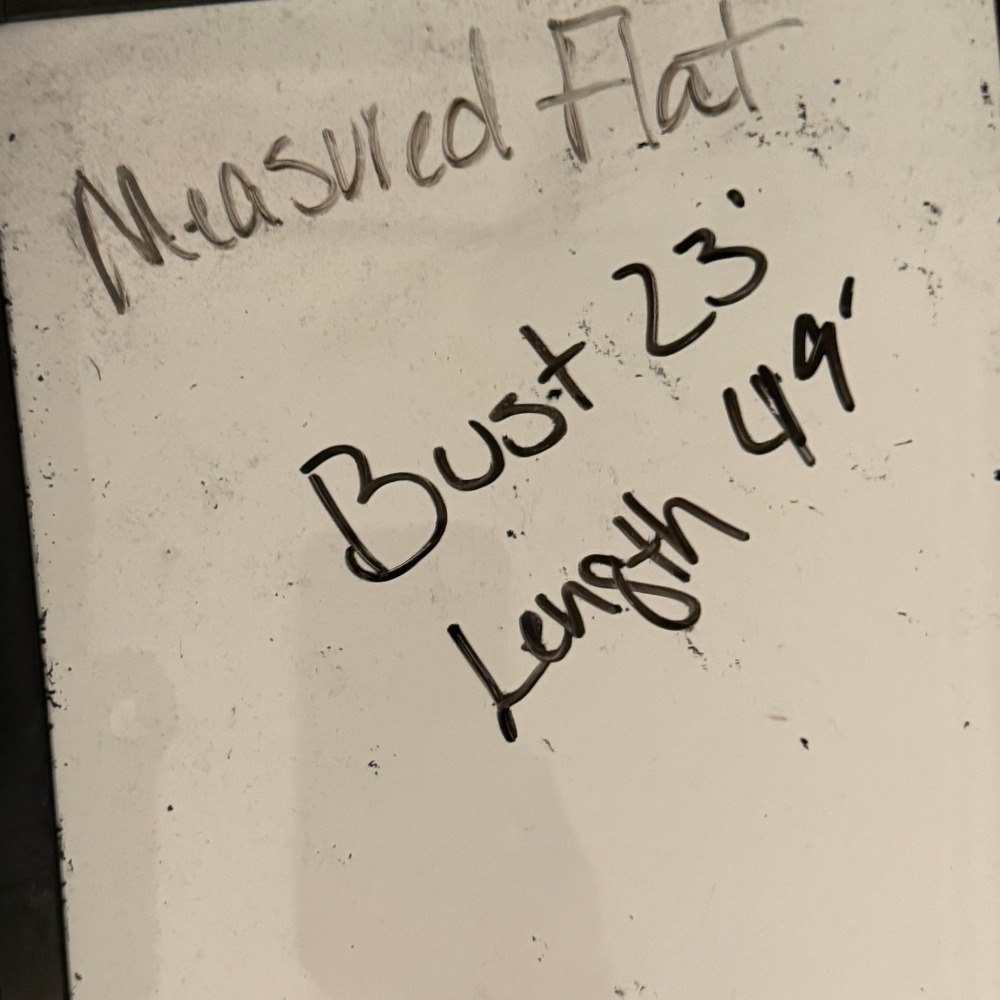 Measured Flat
Bust 23'
Length 49'